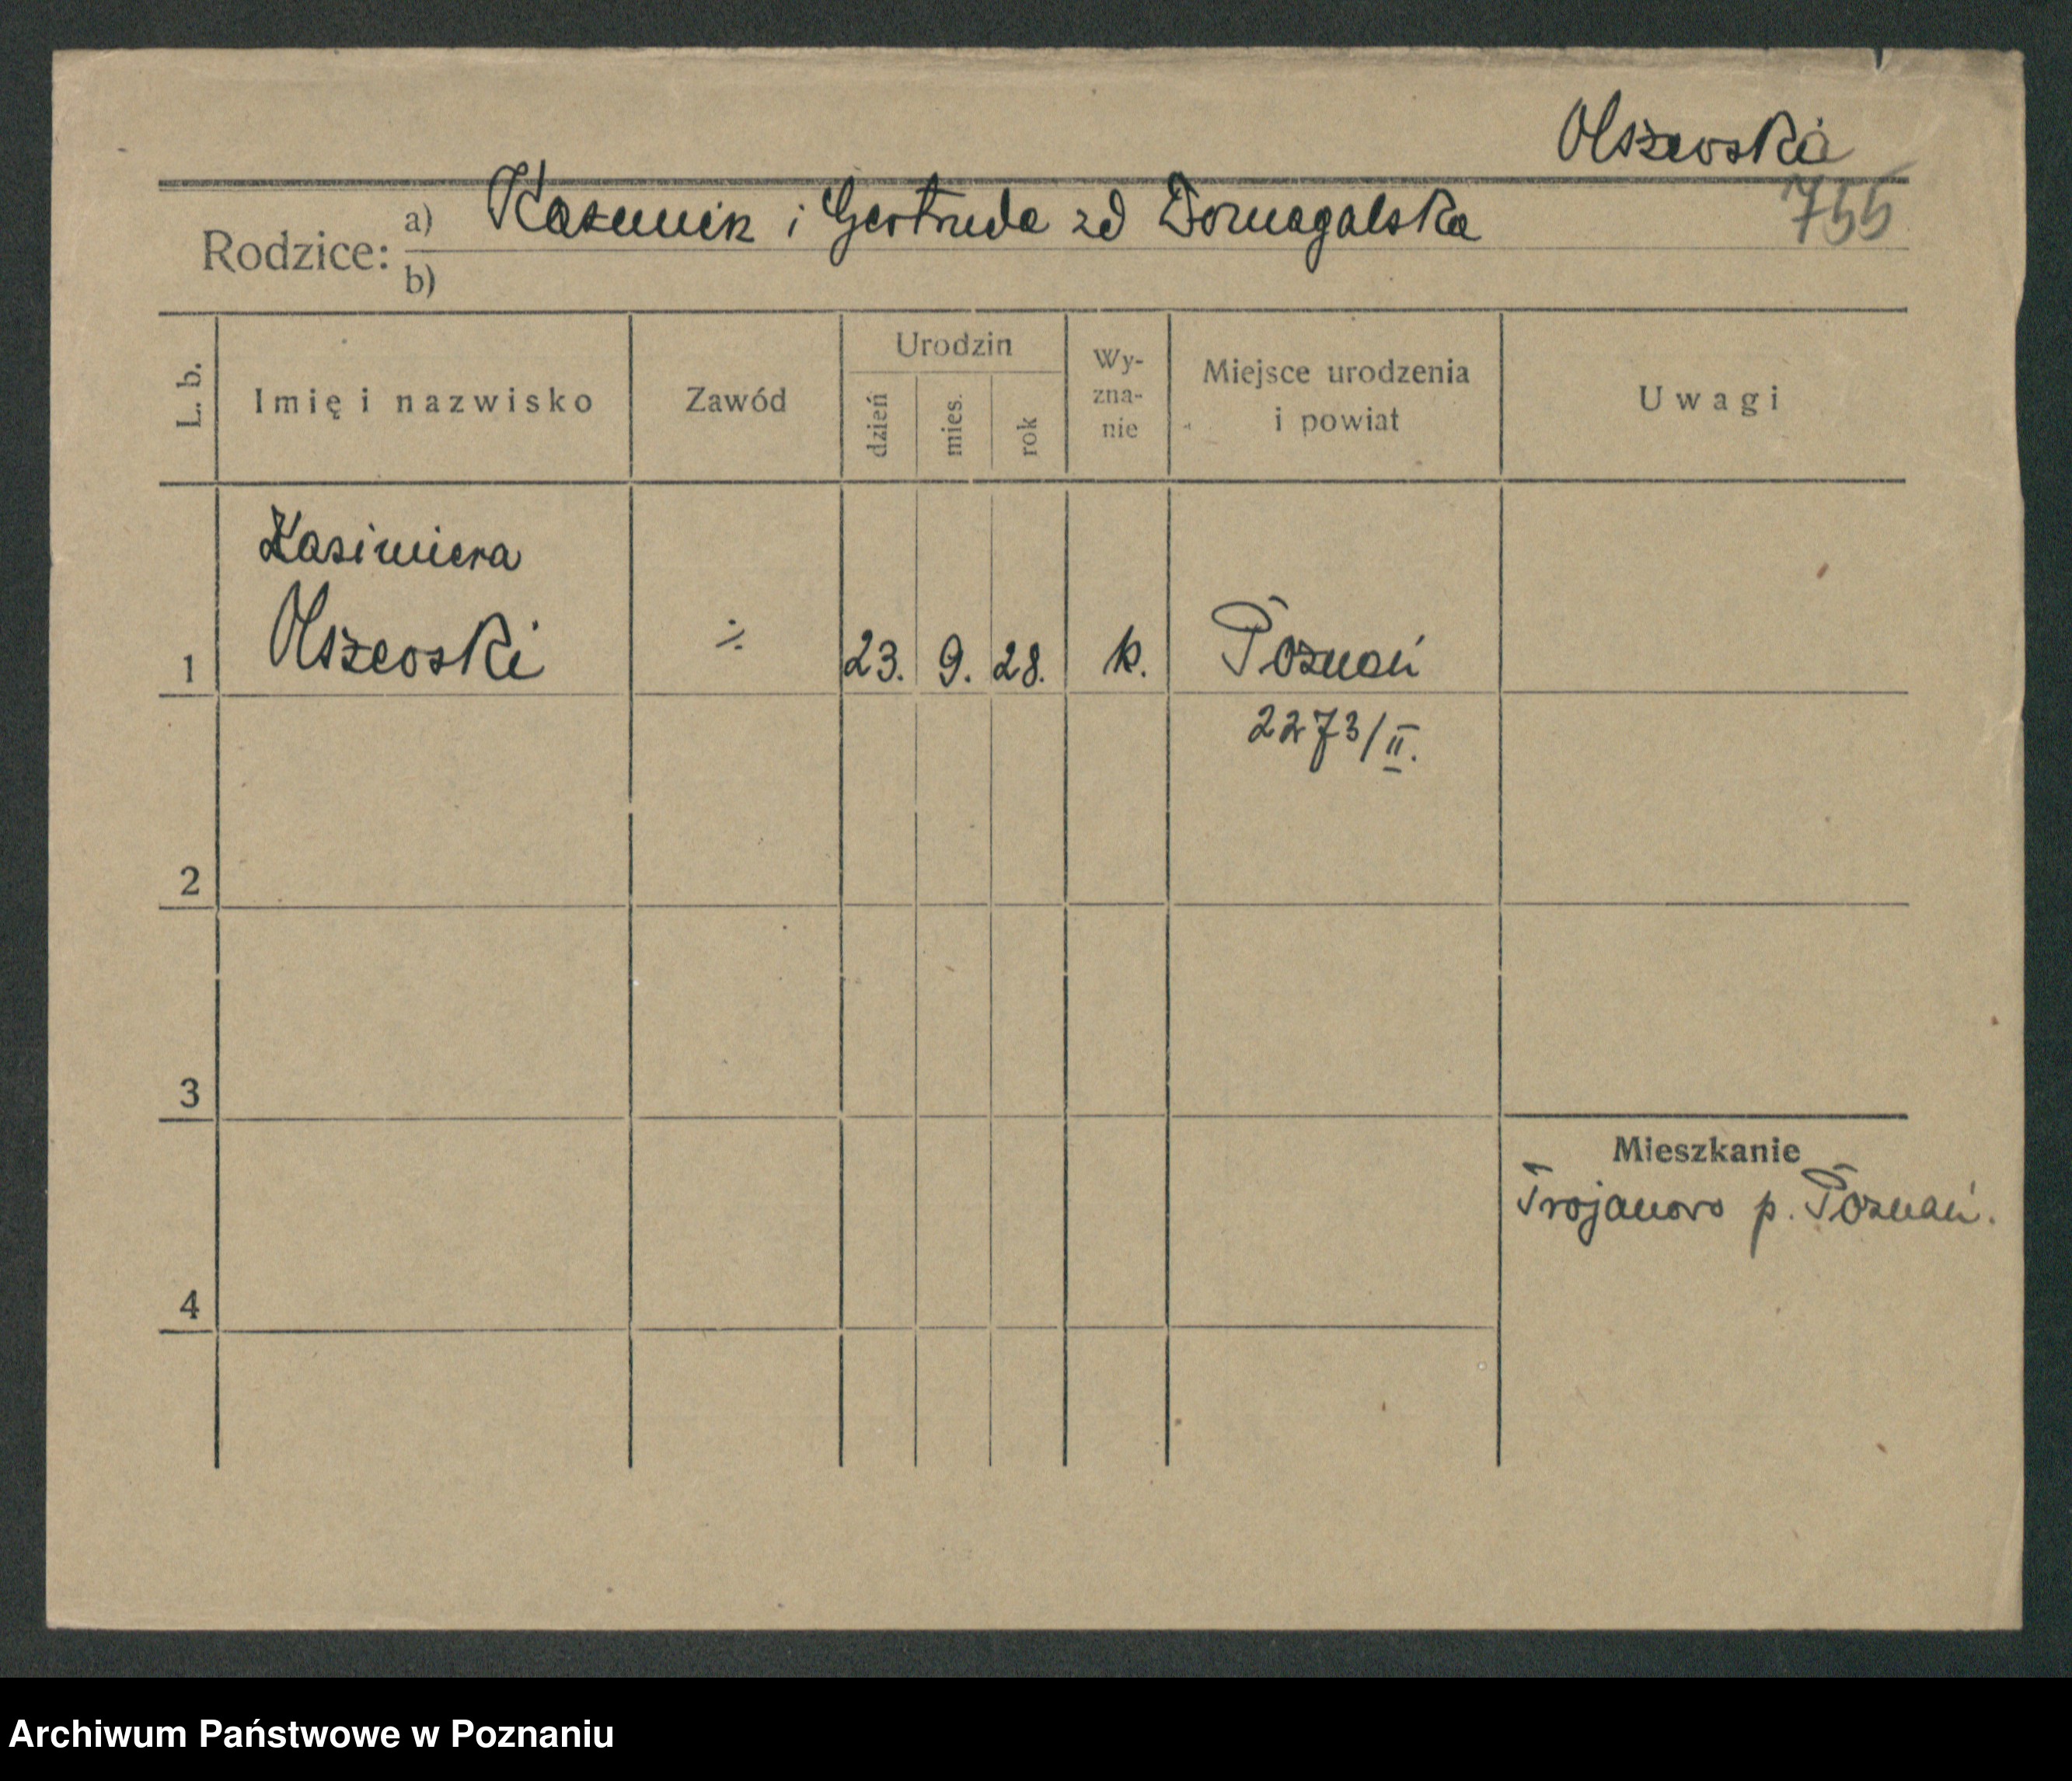 Olszewska
755
Rodzice: a) Kazimierz i Gertruda zd Domagalska
b)
L. b. Imię i nazwisko Zawód Urodzin dzień mies. rok Wy-zna-nie Miejsce urodzenia i powiat Uwagi
Kasimiera
1 Olszewski ./. 23. 9. 28. k. Poznań
2273/II.
2
3
Mieszkanie
Trojanowo p. Poznań.
4
Archiwum Państwowe w Poznaniu